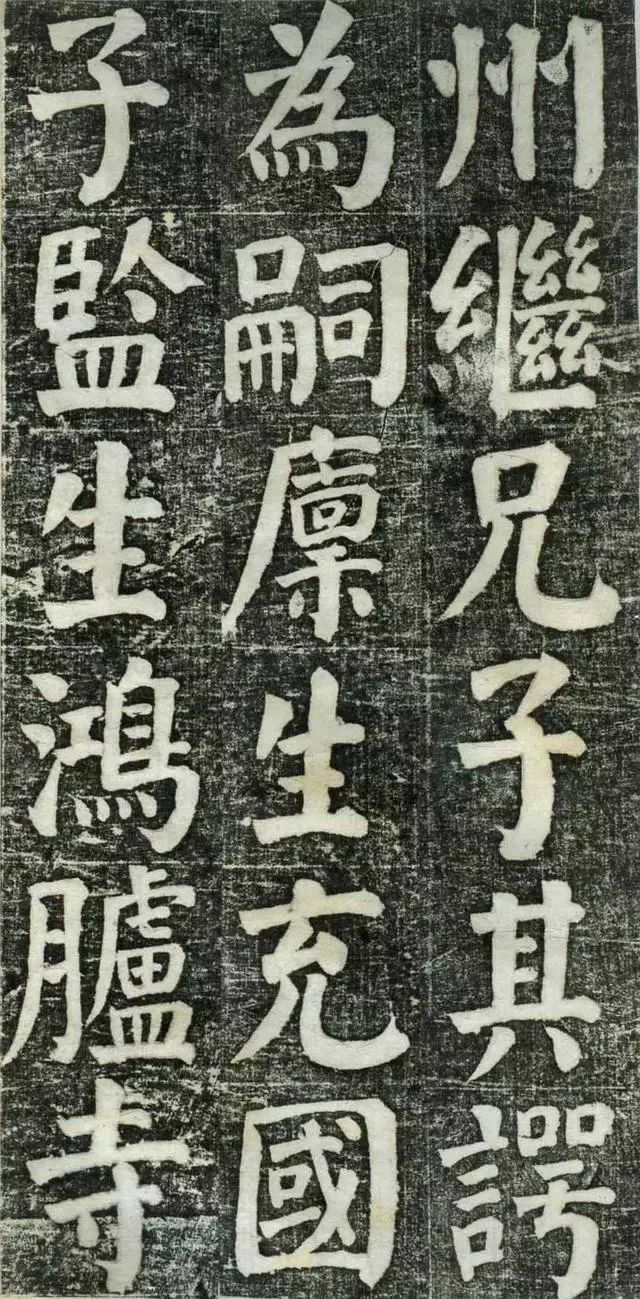 州繼兄子其諤
為嗣廩生充國
子監生鴻臚寺